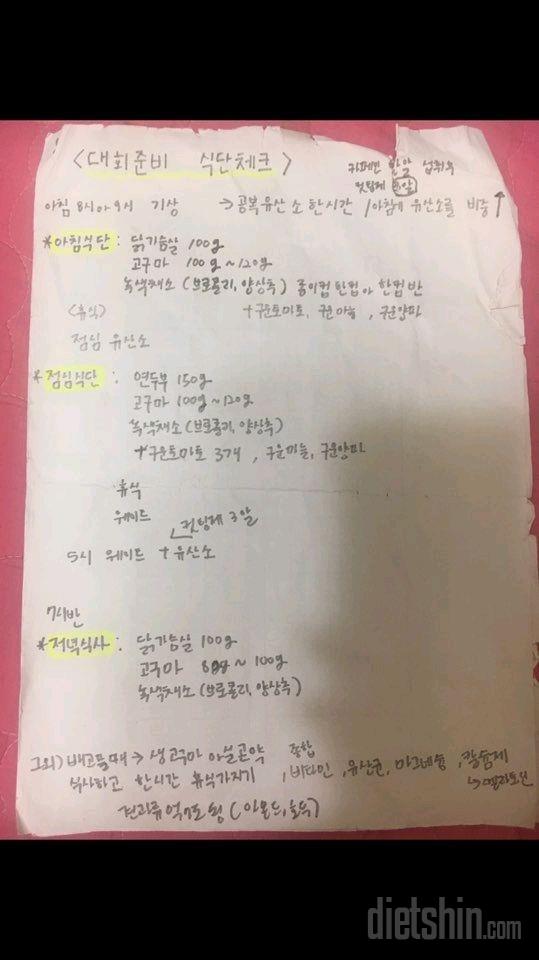 <대회준비 식단체크>
카페인 한알 섭취후
컷팅제
아침 8시or9시 기상 → 공복유산소 한시간 / 아침에 유산소를 비중↑
*아침식단: 닭가슴살 100g
고구마 100g~120g
녹색채소 (브로콜리, 양상추) 종이컵 한컵or한컵반
<휴식> +구운토마토, 구운마늘, 구운양파
점심 유산소
*점심식단: 연두부 150g
고구마 100g~120g
녹색채소 (브로콜리, 양상추)
+구운토마토 3개, 구운마늘, 구운양파
휴식
웨이트
컷팅제 3알
5시 웨이트 + 유산소
7시반
*저녁식사: 닭가슴살 100g
고구마 80g~100g
녹색채소 (브로콜리, 양상추)
그외) 배고플때 → 생고구마 or 실곤약 종합
식사하고 한시간 휴식가지기, 비타민, 유산균, 마그네슘, 칼슘제
↳멜라토닌
견과류 7도 됨 (아몬드, 호두)
dietshin.com